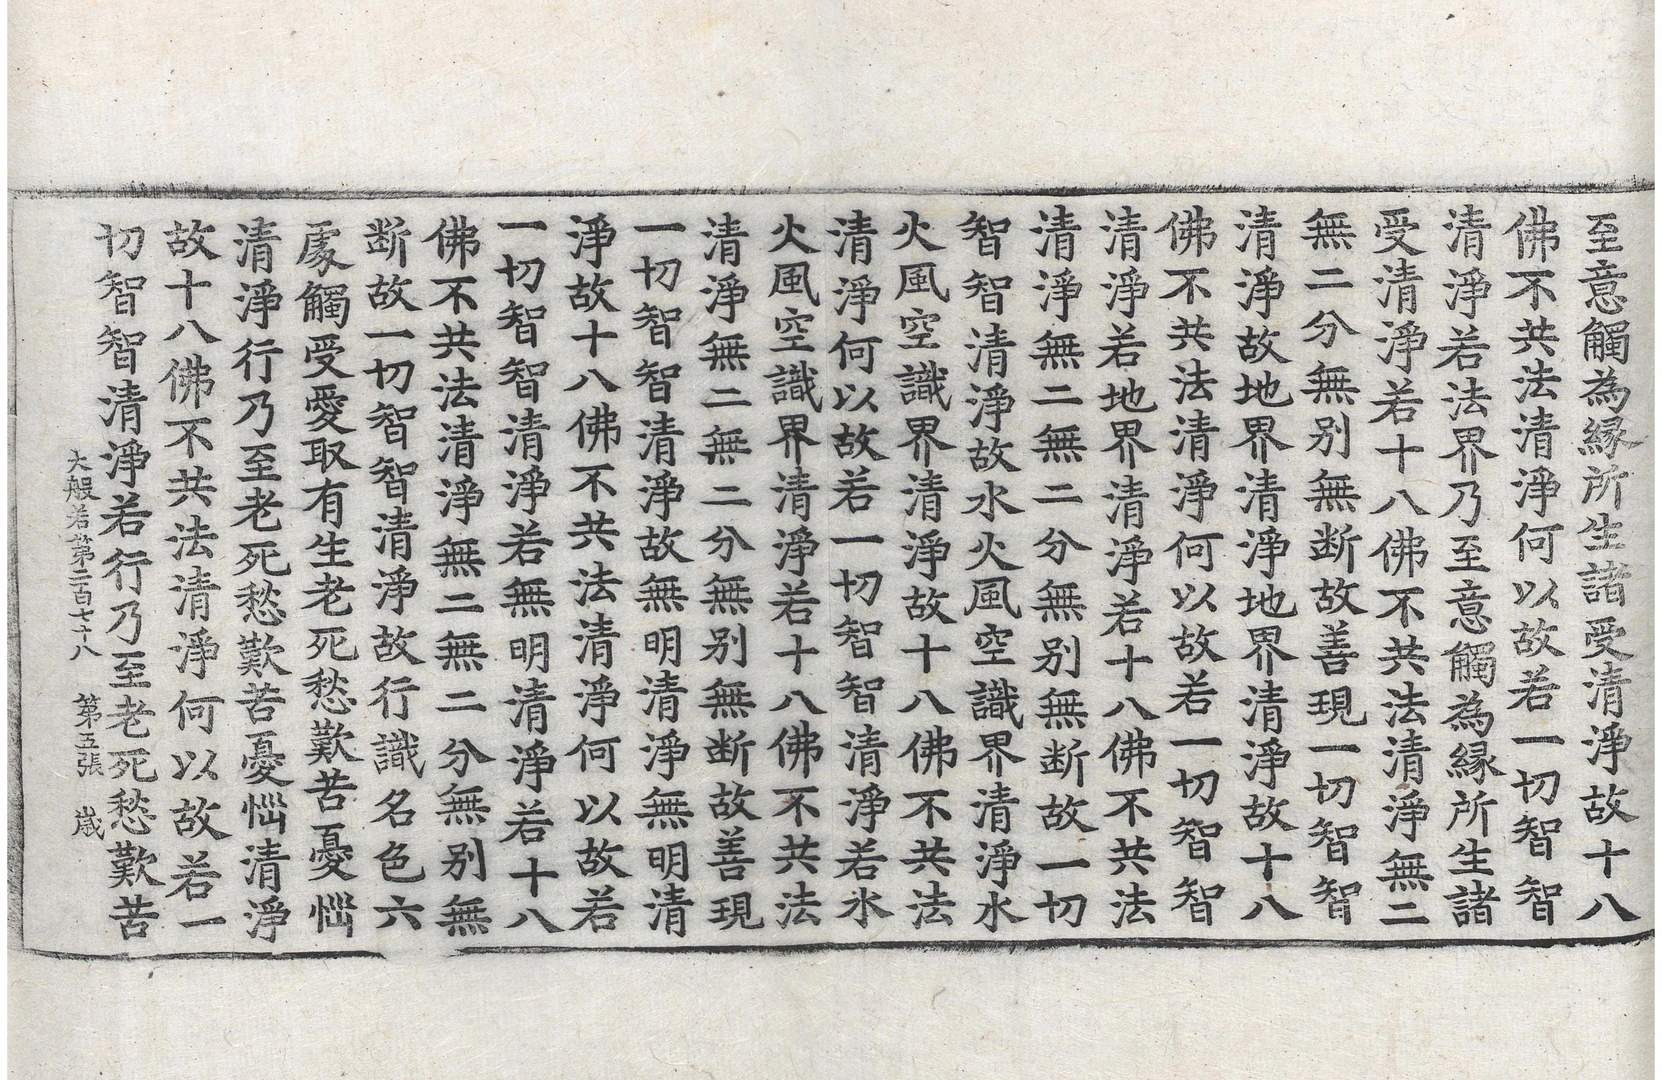 至意觸為緣所生諸受清淨故十八
佛不共法清淨何以故若一切智智
清淨若法界乃至意觸為緣所生諸
受清淨若十八佛不共法清淨無二
無二分無別無断故善現一切智智
清淨故地界清淨地界清淨故十八
佛不共法清淨何以故若一切智智
清淨若地界清淨若十八佛不共法
清淨無二無二分無別無断故一切
智智清淨故水火風空識界清淨水
火風空識界清淨故十八佛不共法
清淨何以故若一切智智清淨若水
火風空識界清淨若十八佛不共法
清淨無二無二分無別無断故善現
一切智智清淨故無明清淨無明清
淨故十八佛不共法清淨何以故若
一切智智清淨若無明清淨若十八
佛不共法清淨無二無二分無別無
断故一切智智清淨故行識名色六
處觸受愛取有生老死愁歎苦憂惱
清淨行乃至老死愁歎苦憂惱清淨
故十八佛不共法清淨何以故若一
切智智清淨若行乃至老死愁歎苦
大般若第二百七十八 第五張 歲